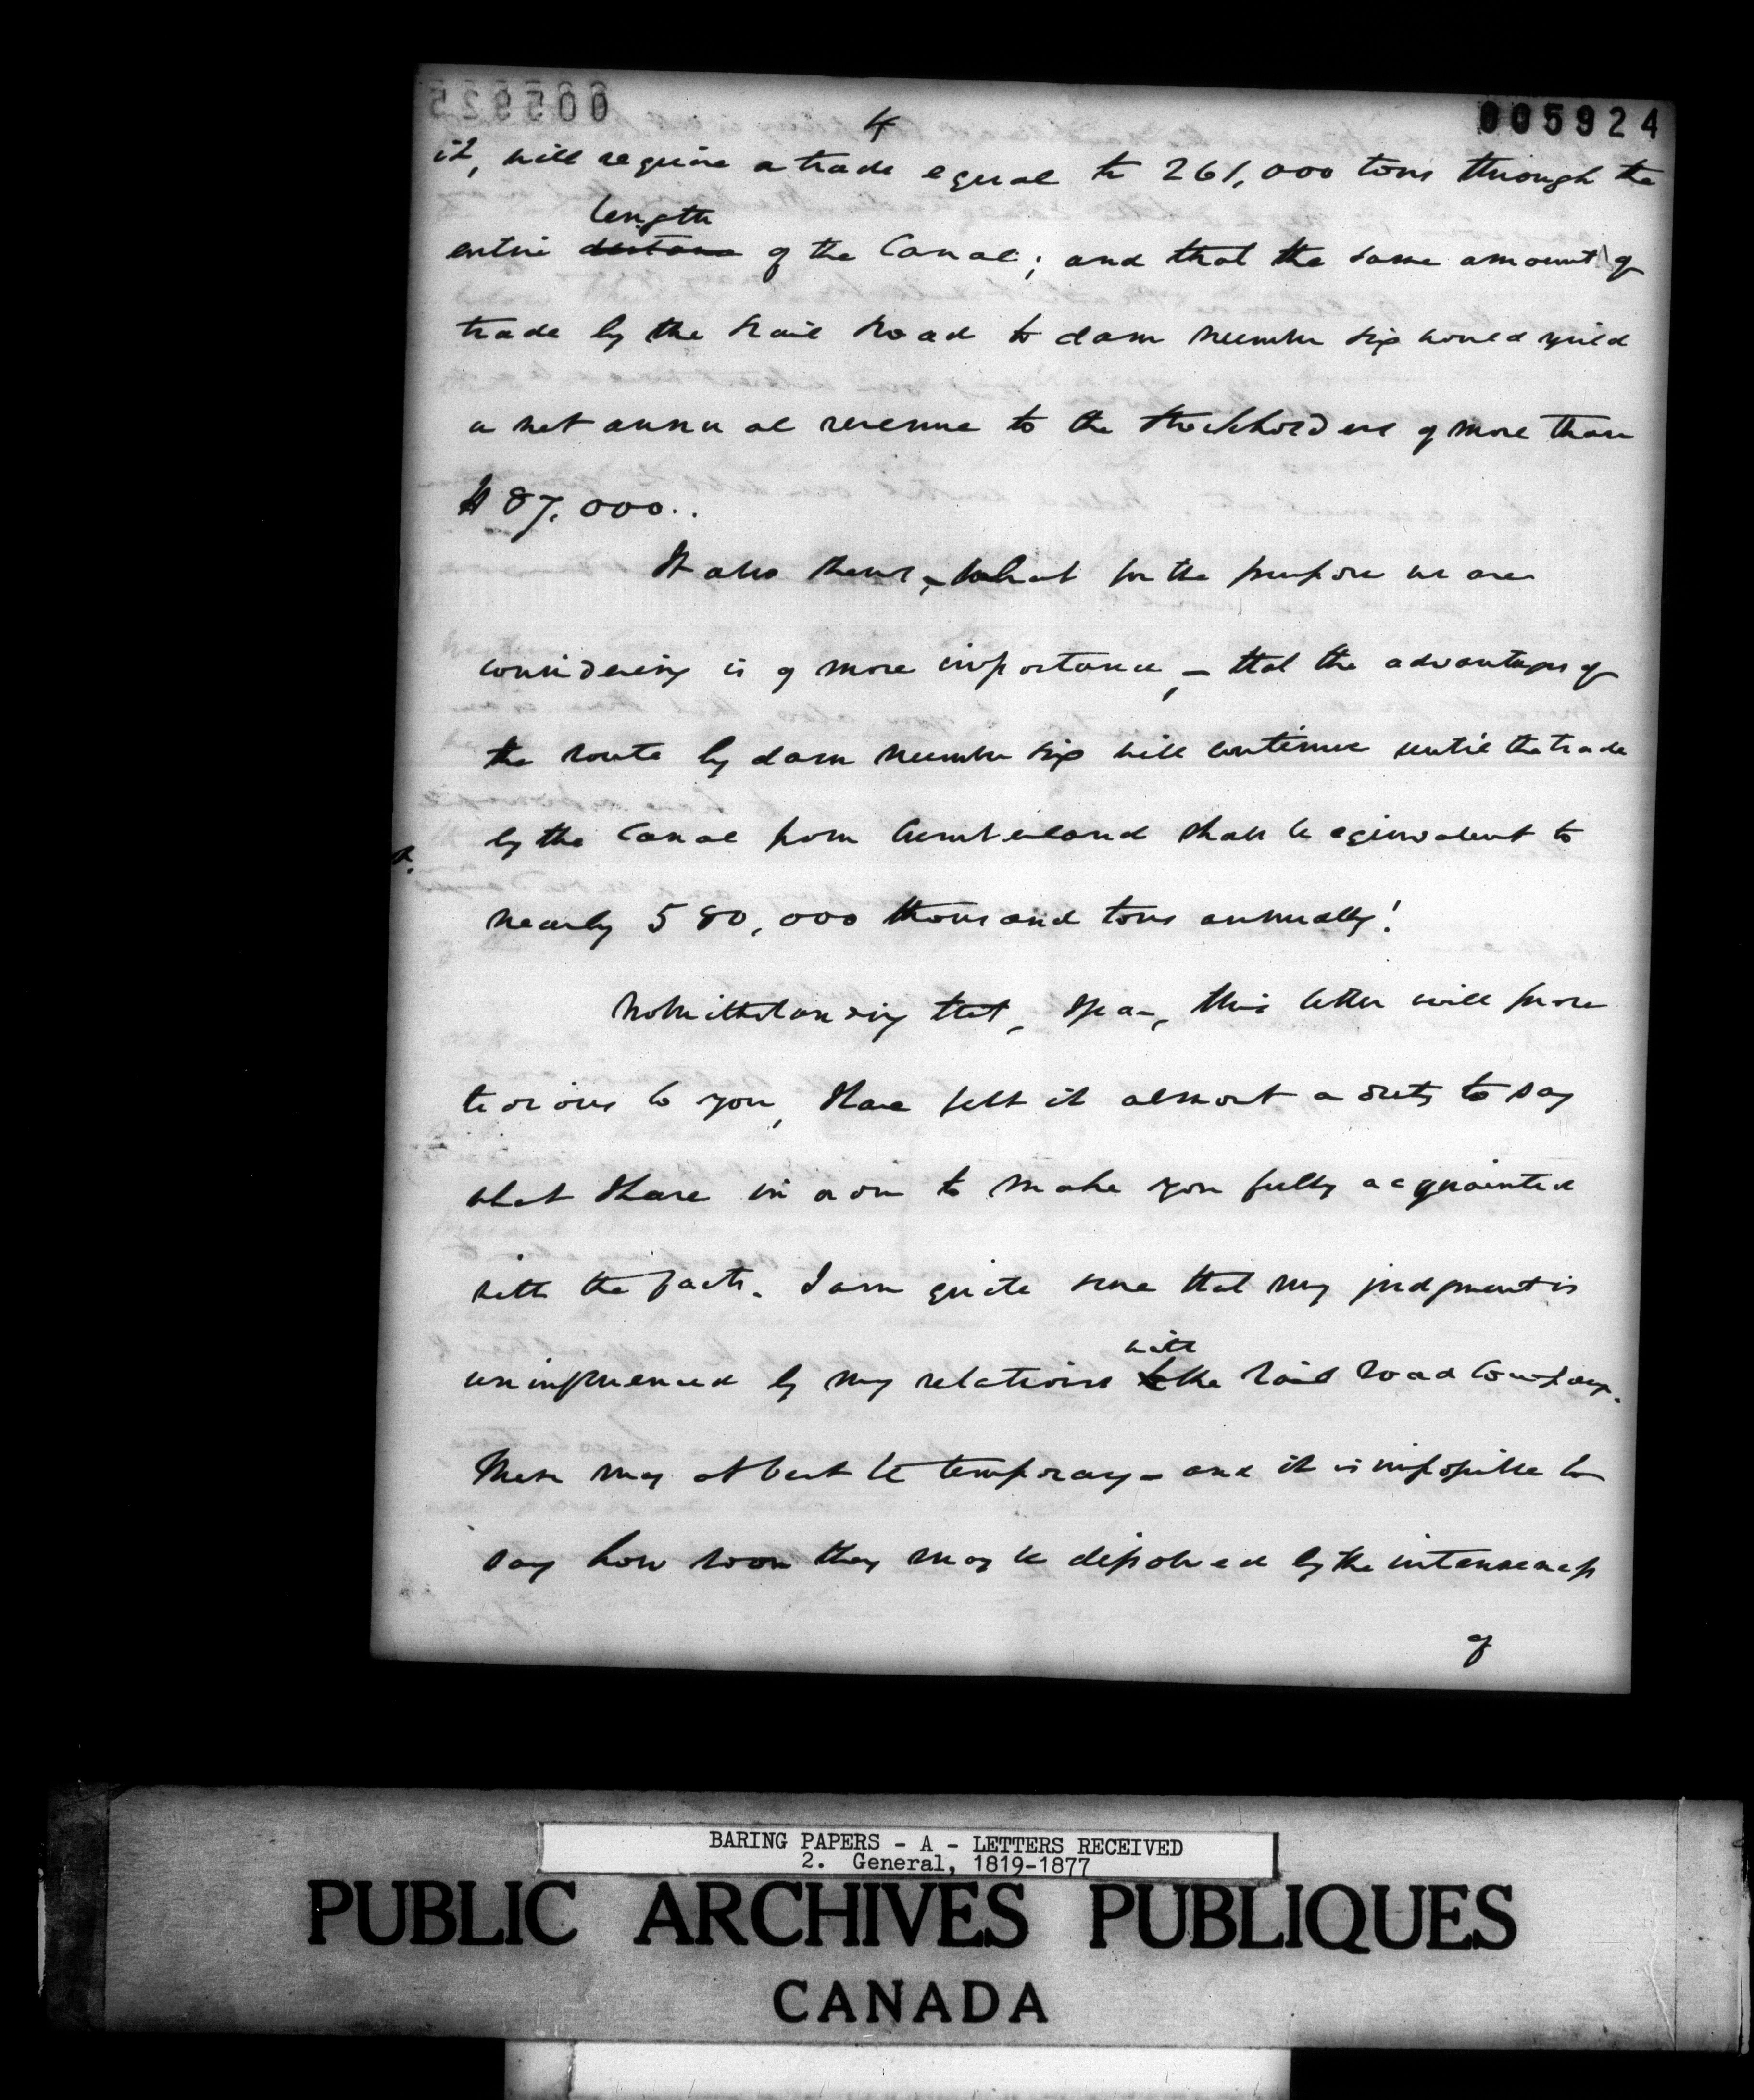 005924
4
it, will require a trade equal to 261,000 tons through the
length
entire distance of the Canal; and that the same amount of
trade by the Rail Road to dam number six would yield
a net annual revenue to the Stockholders of more than
$87,000..
It also shews, - what for the purpose we are
considering is of more importance, - that the advantages of
the route by dam number six will continue until the trade
by the Canal from Cumberland shall be equivalent to
nearly 580,000 thousand tons annually!
Notwithstanding that, I fear, this letter will prove
tedious to you, I have felt it almost a duty to say
what I have in order to make you fully acquainted
with the facts. I am quite sure that my judgment is
with
uninfluenced by my relations the Rail Road Company.
These may at best be temporary - and it is impossible to
say how soon they may be dissolved by the intenseness
of
BARING PAPERS - A - LETTERS RECEIVED
2. General, 1819-1877
PUBLIC ARCHIVES PUBLIQUES
CANADA